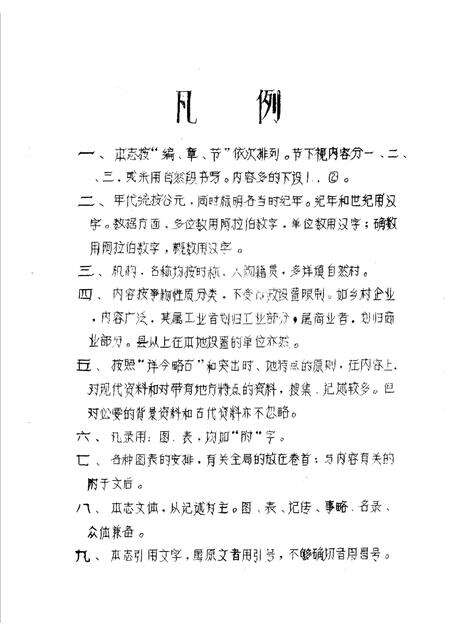 凡 例
一、本志按“编、章、节”依次排列。节下视内容分一、二、
三，或采用自然段书写。内容多的下设1．②。
二、年代统按公元，同时标明各当时纪年。纪年和世纪用汉
字。数据方面，多位数用阿拉伯数字，单位数用汉字；确数
用阿拉伯数字，概数用汉字。
三、机构，名称均按时称、人物籍贯，多详填自然村。
四、内容按事物性质分类，不受行政设置限制。如乡村企业
，内容广泛，其属工业者划归工业部分，属商业者，划归商
业部分。县以上在本地设置的单位亦然。
五、按照“详今略古”和突出时、地特点的原则，在内容上，
对现代资料和对带有地方特点的资料，搜集、记述较多。但
对必要的背景资料和古代资料亦不忽略。
六、凡录用：图、表，均加“附”字。
七、各种图表的安排，有关全局的放在卷首；与内容有关的
附于文后。
八、本志文体，从记述为主。图、表、记传、事略、名录、
众体兼备。
九、本志引用文字，属原文者用引号，不够确切者用冒号。